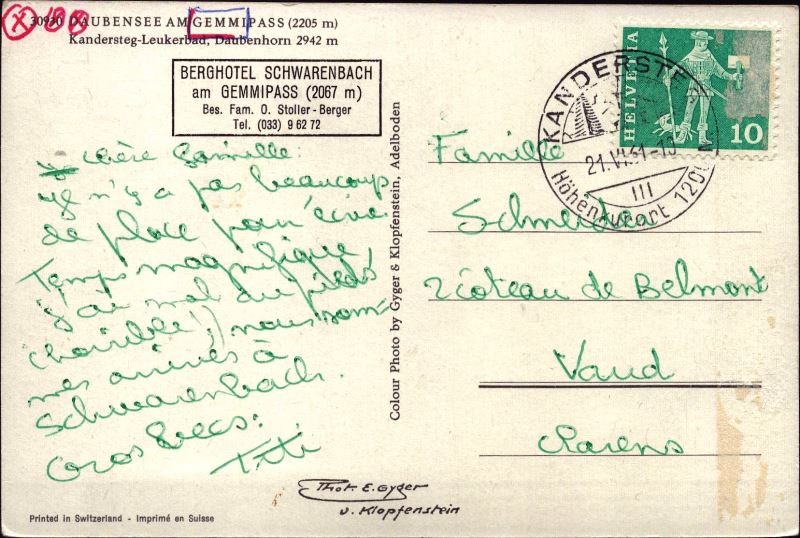 30930 DAUBENSEE AM GEMMIPASS (2205 m)
Kandersteg-Leukerbad, Daubenhorn 2942 m
BERGHOTEL SCHWARENBACH
am GEMMIPASS (2067 m)
Bes. Fam. O. Stoller - Berger
Tel. (033) 9 62 72
chère famille
y n'y a pas beaucoup
de place pour écrire
Temps magnifique,
j'ai mal du pieds
(horrible!) nous som-
mes arrivés à
Schwarenbach.
Gros becs:
Titi
Printed in Switzerland - Imprimé en Suisse
Colour Photo by Gyger & Klopfenstein, Adelboden
Phot. E. Gyger
u. Klopfenstein
HELVETIA
10
KANDERSTE
21.VI.61-10
III
Höhenkurort 1200 M
Famille
2 côteau de Belmont
Vaud
Clarens